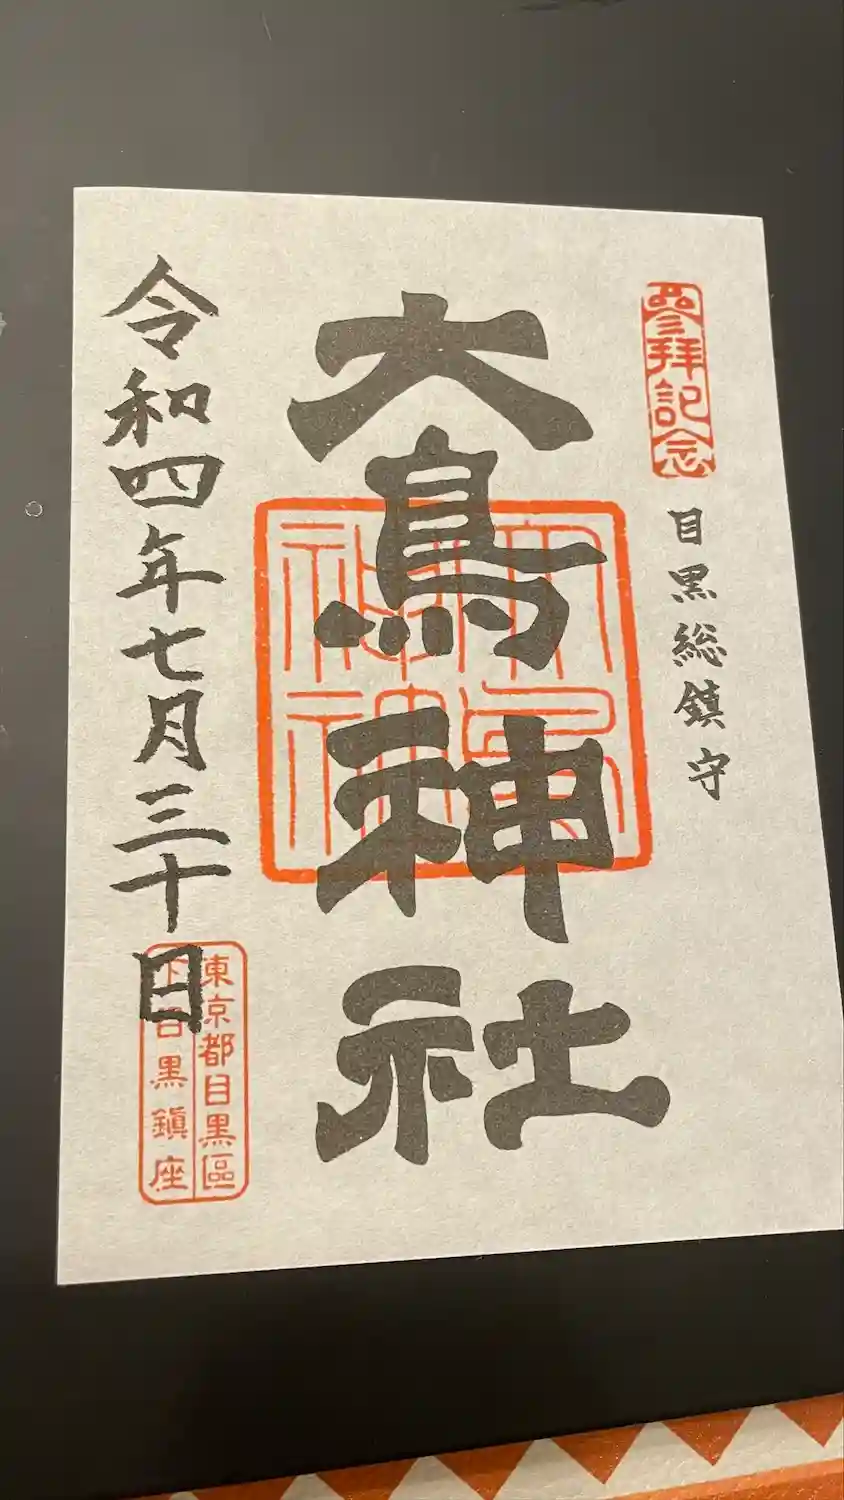 參拜記念
目黒総鎮守
大鳥神社
令和四年七月三十日
東京都目黒區
下目黒鎭座